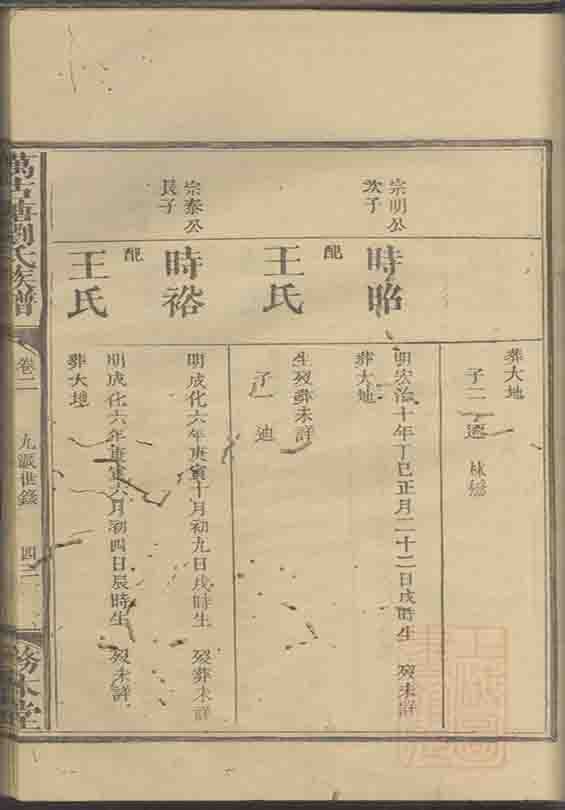 葬大地
子二
宗明公
次子
時昭
明宏治十年丁巳正月二十二日戌時生 歿未詳
葬大地
配
王氏
生歿葬未詳
子一 迪
宗泰公
長子
時裕
明成化六年庚寅十月初九日戌時生 歿葬未詳
配
王氏
明成化六年庚寅六月初四日辰時生 歿未詳
葬大地
劉氏族譜
卷二
九派世錄
務本堂